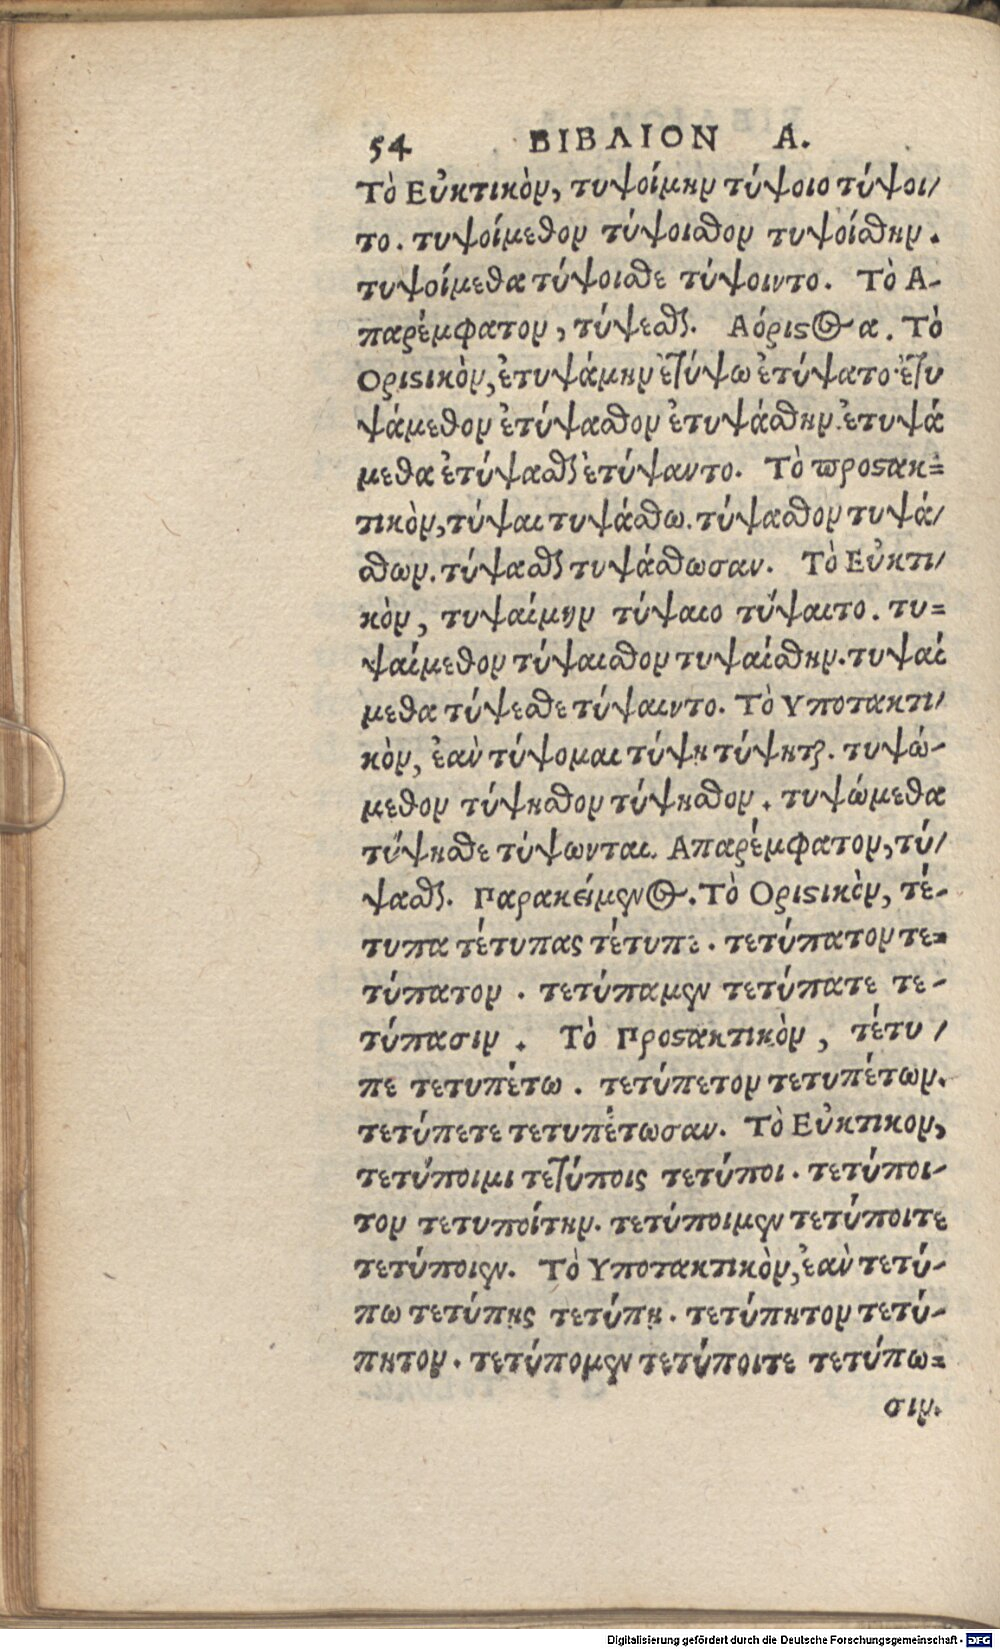 54 ΒΙΒΛΙΟΝ Α.
Τὸ Εὐκτικὸν, τυψοίμην τύψοιο τύψοι/
το. τυψοίμεθον τύψοισθον τυψοίσθην.
τυψοίμεθα τύψοισθε τύψοιντο. Τὸ Α-
παρέμφατον, τύψεσθαι. Αόριςος α. Τὸ
Οριςικὸν, ἐτυψάμην ἐτύψω ἐτύψατο. ἐτυ
ψάμεθον ἐτύψασθον ἐτυψάσθην. ἐτυψά
μεθα ἐτύψασθε ἐτύψαντο. Τὸ προςακ=
τικὸν, τύψαι τυψάσθω. τύψασθον τυψά/
σθων. τύψασθε τυψάσθωσαν. Τὸ Εὐκτι/
κὸν, τυψαίμην τύψαιο τύψαιτο. τυ=
ψαίμεθον τύψαισθον τυψαίσθην. τυψαί
μεθα τύψεσθε τύψαιντο. Τὸ Υποτακτι/
κὸν, ἐαὶν τύψομαι τύψη τύψηται. τυψώ-
μεθον τύψησθον τύψησθον. τυψώμεθα
τύψησθε τύψωνται. Απαρέμφατον, τύ/
ψασθαι. Παρακείμενος. Τὸ Οριςικὸν, τέ-
τυπα τέτυπας τέτυπε. τετύπατον τε=
τύπατον. τετύπαμεν τετύπατε τε-
τύπασιν. Τὸ Προςακτικὸν, τέτυ/
πε τετυπέτω. τετύπετον τετυπέτων.
τετύπετε τετυπέτωσαν. Τὸ Εὐκτικον,
τετύποιμι τετύποις τετύποι. τετύποι-
τον τετυποίτην. τετύποιμεν τετύποιτε
τετύποιεν. Τὸ Υποτακτικὸν, ἐαὶν τετύ-
πω τετύπης τετύπη. τετύπητον τετύ-
πητον. τετύπομεν τετύποιτε τετύπω=
σιν.
Digitalisierung gefördert durch die Deutsche Forschungsgemeinschaft - DFG